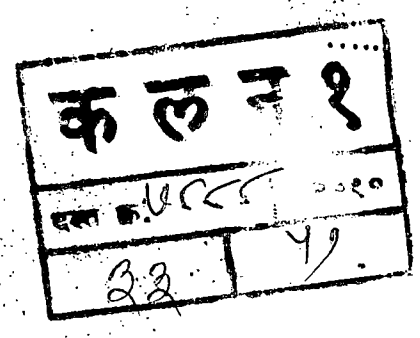 क ल न १
दस्त क्र. ५८८८ २०१०
३३ ५१